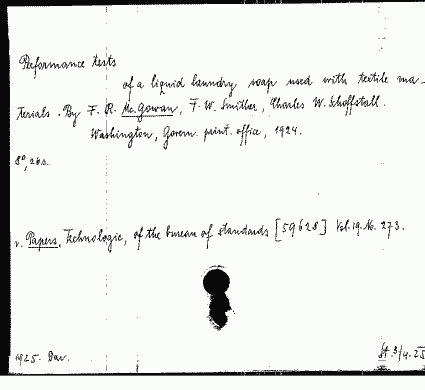 Performance tests
of a liquid laundry soap used with textile ma-
terials. By F. R. Mc. Gowan, F. W. Smither, Charles W. Schoffstall.
Washington, Govern. print. office, 1924.
8°, 26 s.
v. Papers, Technologic, of the bureau of standards [59628] Vol. 19. No. 273.
1925. Dar.